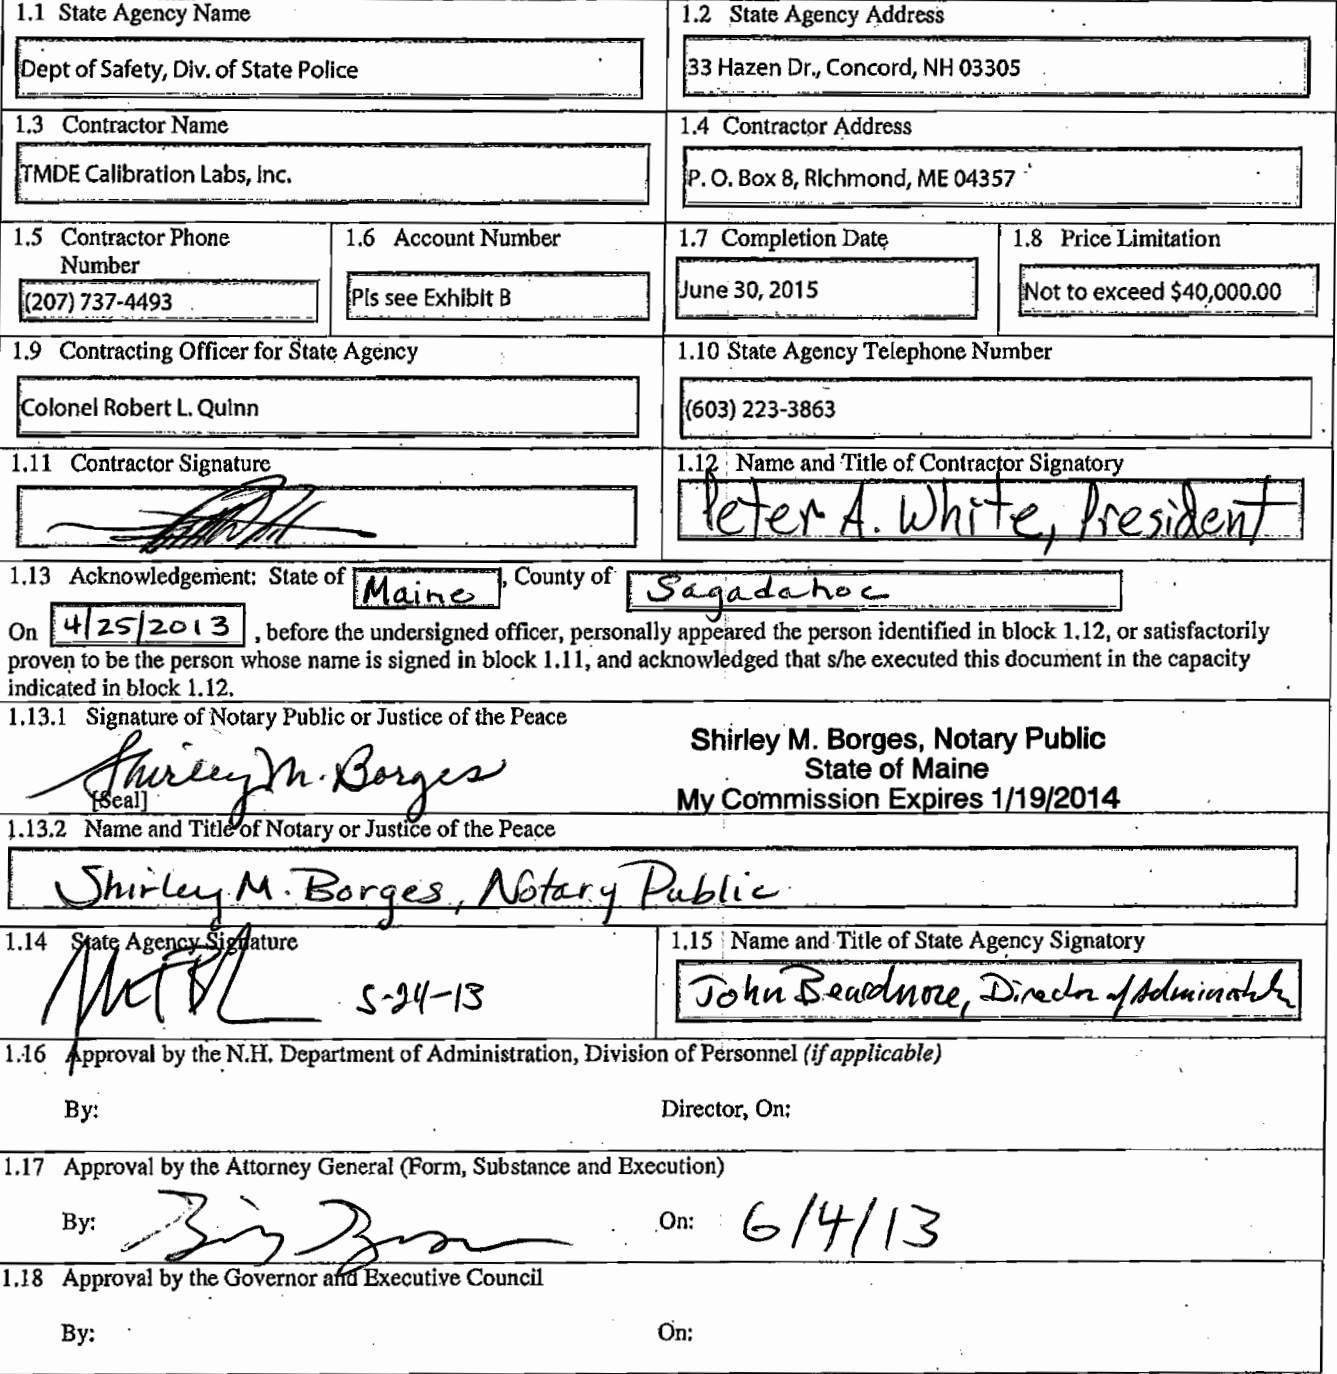 1.1 State Agency Name
Dept of Safety, Div. of State Police
1.2 State Agency Address
33 Hazen Dr., Concord, NH 03305
1.3 Contractor Name
TMDE Calibration Labs, Inc.
1.4 Contractor Address
P. O. Box 8, Richmond, ME 04357
1.5 Contractor Phone
Number
(207) 737-4493
1.6 Account Number
Pls see Exhibit B
1.7 Completion Date
June 30, 2015
1.8 Price Limitation
Not to exceed $40,000.00
1.9 Contracting Officer for State Agency
Colonel Robert L. Quinn
1.10 State Agency Telephone Number
(603) 223-3863
1.11 Contractor Signature
1.12 Name and Title of Contractor Signatory
Peter A. White, President
1.13 Acknowledgement: State of Maine, County of Sagadahoc
On 4/25/2013, before the undersigned officer, personally appeared the person identified in block 1.12, or satisfactorily
proven to be the person whose name is signed in block 1.11, and acknowledged that s/he executed this document in the capacity
indicated in block 1.12.
1.13.1 Signature of Notary Public or Justice of the Peace
Shirley M. Borges
[Seal]
Shirley M. Borges, Notary Public
State of Maine
My Commission Expires 1/19/2014
1.13.2 Name and Title of Notary or Justice of the Peace
Shirley M. Borges, Notary Public
1.14 State Agency Signature
5-24-13
1.15 Name and Title of State Agency Signatory
John Beardmore, Director of Administration
1.16 Approval by the N.H. Department of Administration, Division of Personnel (if applicable)
By:
Director, On:
1.17 Approval by the Attorney General (Form, Substance and Execution)
By:
On: 6/4/13
1.18 Approval by the Governor and Executive Council
By:
On: